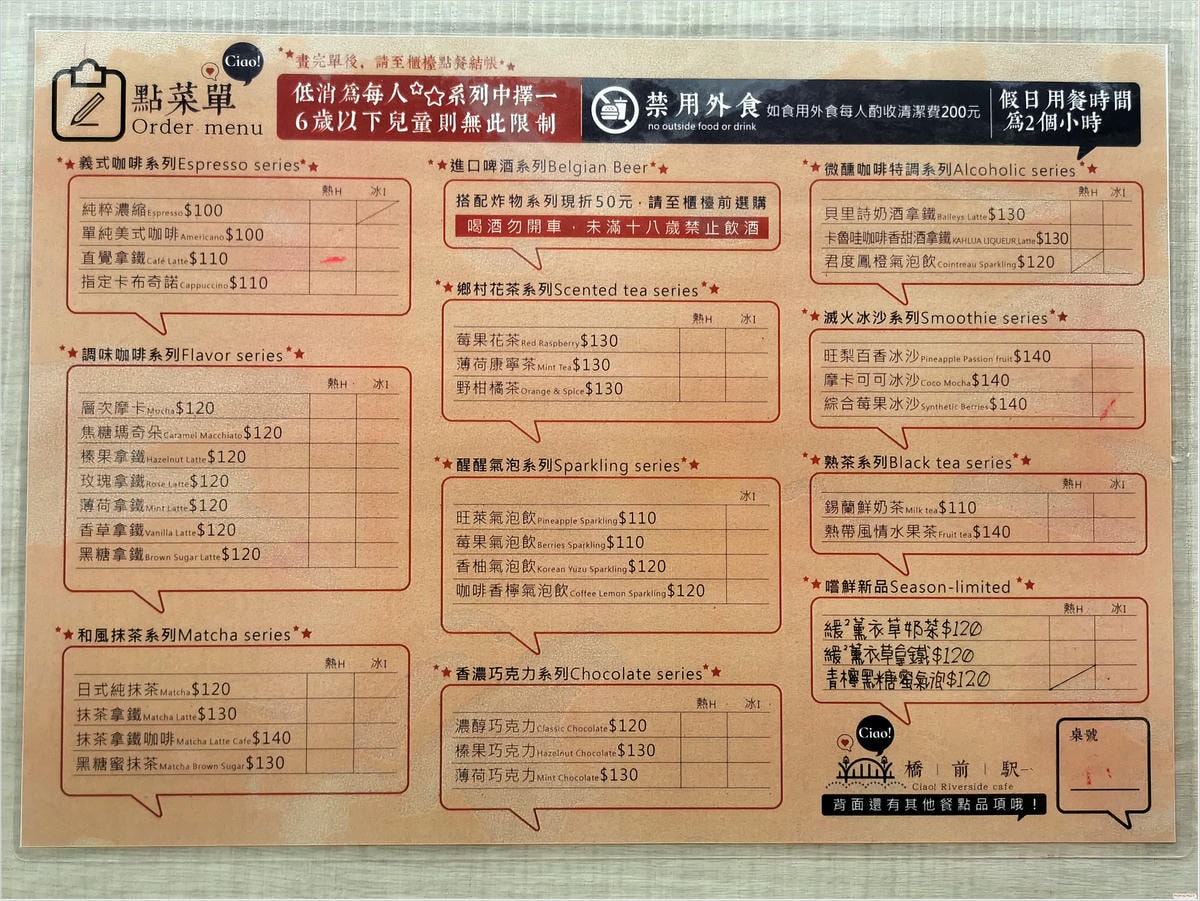 Ciao!
*★畫完單後，請至櫃檯點餐結帳★*
點菜單
Order menu
低消為每人☆☆系列中擇一
6歲以下兒童則無此限制
禁用外食
no outside food or drink
如食用外食每人酌收清潔費200元
假日用餐時間
為2個小時
義式咖啡系列Espresso series
熱H 冰I
純粹濃縮Espresso$100
單純美式咖啡Americano$100
直覺拿鐵Café Latte$110
指定卡布奇諾Cappuccino$110
調味咖啡系列Flavor series
熱H 冰I
層次摩卡Mocha$120
焦糖瑪奇朵Caramel Macchiato$120
榛果拿鐵Hazelnut Latte$120
玫瑰拿鐵Rose Latte$120
薄荷拿鐵Mint Latte$120
香草拿鐵Vanilla Latte$120
黑糖拿鐵Brown Sugar Latte$120
和風抹茶系列Matcha series
熱H 冰I
日式純抹茶Matcha$120
抹茶拿鐵Matcha Latte$130
抹茶拿鐵咖啡Matcha Latte Cafe$140
黑糖蜜抹茶Matcha Brown Sugar$130
進口啤酒系列Belgian Beer
搭配炸物系列現折50元，請至櫃檯前選購
喝酒勿開車，未滿十八歲禁止飲酒
鄉村花茶系列Scented tea series
熱H 冰I
莓果花茶Red Raspberry$130
薄荷康寧茶Mint Tea$130
野柑橘茶Orange & Spice$130
醒醒氣泡系列Sparkling series
冰I
旺萊氣泡飲Pineapple Sparkling$110
莓果氣泡飲Berries Sparkling$110
香柚氣泡飲Korean Yuzu Sparkling$120
咖啡香檸氣泡飲Coffee Lemon Sparkling$120
香濃巧克力系列Chocolate series
熱H 冰I
濃醇巧克力Classic Chocolate$120
榛果巧克力Hazelnut Chocolate$130
薄荷巧克力Mint Chocolate$130
微醺咖啡特調系列Alcoholic series
熱H 冰I
貝里詩奶酒拿鐵Baileys Latte$130
卡魯哇咖啡香甜酒拿鐵KAHLUA LIQUEUR Latte$130
君度鳳橙氣泡飲Cointreau Sparkling$120
滅火冰沙系列Smoothie series
冰I
旺梨百香冰沙Pineapple Passion fruit$140
摩卡可可冰沙Coco Mocha$140
綜合莓果冰沙Synthetic Berries$140
熟茶系列Black tea series
熱H 冰I
錫蘭鮮奶茶Milk tea$110
熱帶風情水果茶Fruit tea$140
嚐鮮新品Season-limited
熱H 冰I
緩²薰衣草奶茶$120
緩²薰衣草拿鐵$120
青檸黑糖蜜氣泡$120
Ciao!
橋｜前｜駅
Ciao! Riverside cafe
背面還有其他餐點品項哦！
桌號